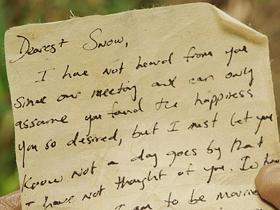 Dearest Snow,
I have not heard from you
since our meeting and can only
assume you found the happiness
you so desired, but I must let you
know not a day goes by that
I have not thought of you. In
I am to be married